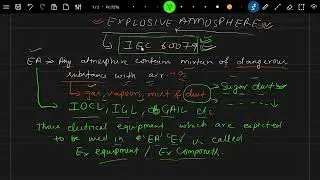 1/2
EXPLOSIVE ATMOSPHERE
IEC 60079
EA → Any atmosphere contains mixture of dangerous
substance with air - O2
→ gas, vapours, mist & dust → Sugar dust
IOCL, IGL, GAIL etc
Those electrical equipment which are expected
to be used in "EA" "Ex" is called
Ex equipment / Ex Components.